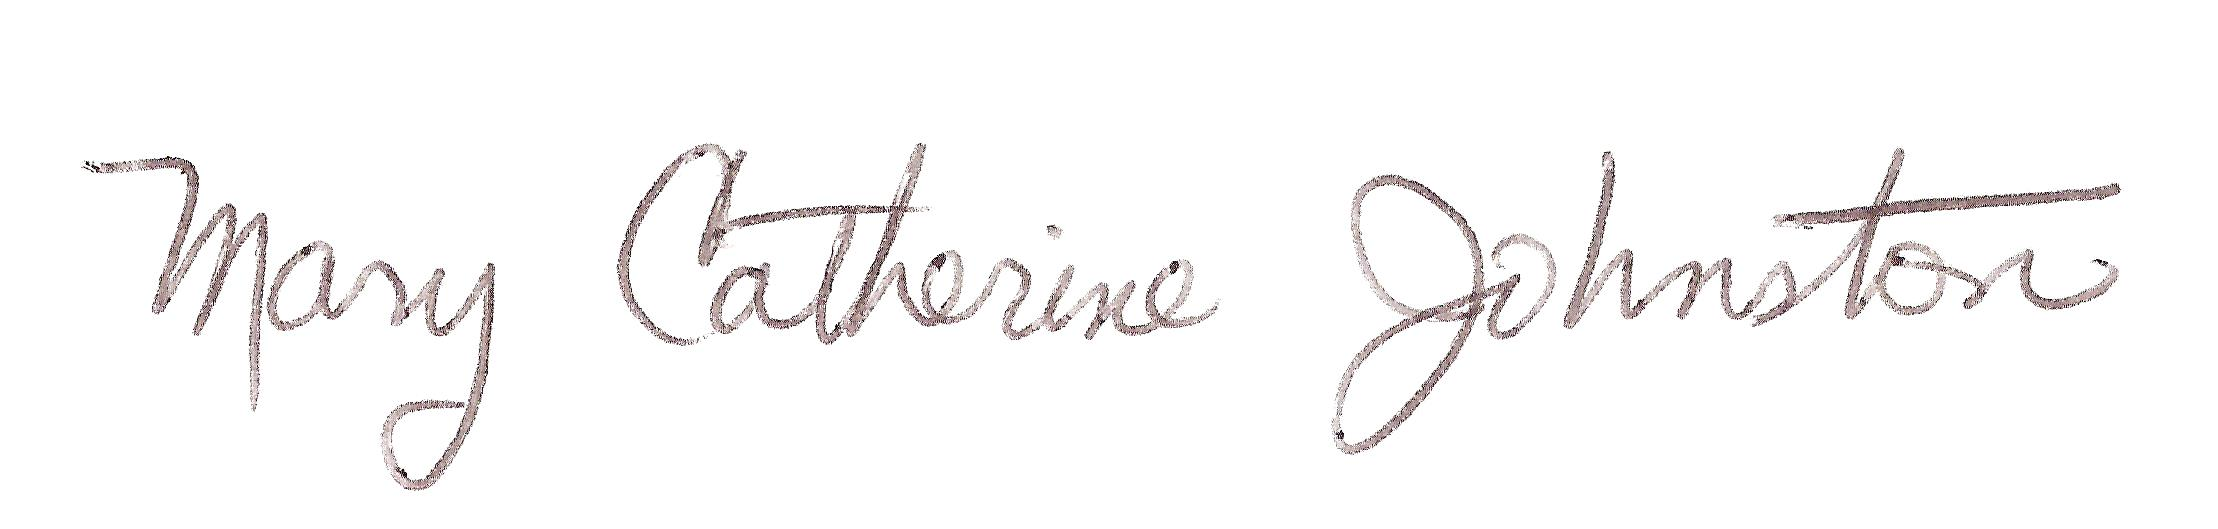 Mary Catherine Johnston